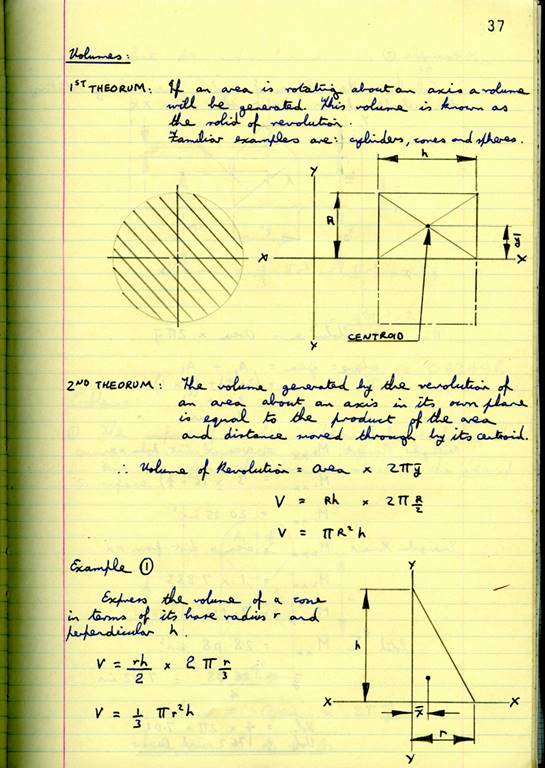 37
Volumes:
1ST THEORUM: If an area is rotating about an axis a volume
will be generated. This volume is known as
the solid of revolution.
Familiar examples are: cylinders, cones and spheres.
Y
h
R
ȳ
X
X
CENTROID
Y
2ND THEORUM: The volume generated by the revolution of
an area about an axis in its own plane
is equal to the product of the area
and distance moved through by its centroid.
∴ Volume of Revolution = area × 2πȳ
V = Rh × 2π R/2
V = πR²h
Example ①
Express the volume of a cone
in terms of its base radius r and
perpendicular h.
V = rh/2 × 2π r/3
V = 1/3 πr²h
Y
h
X
x̄
X
r
Y